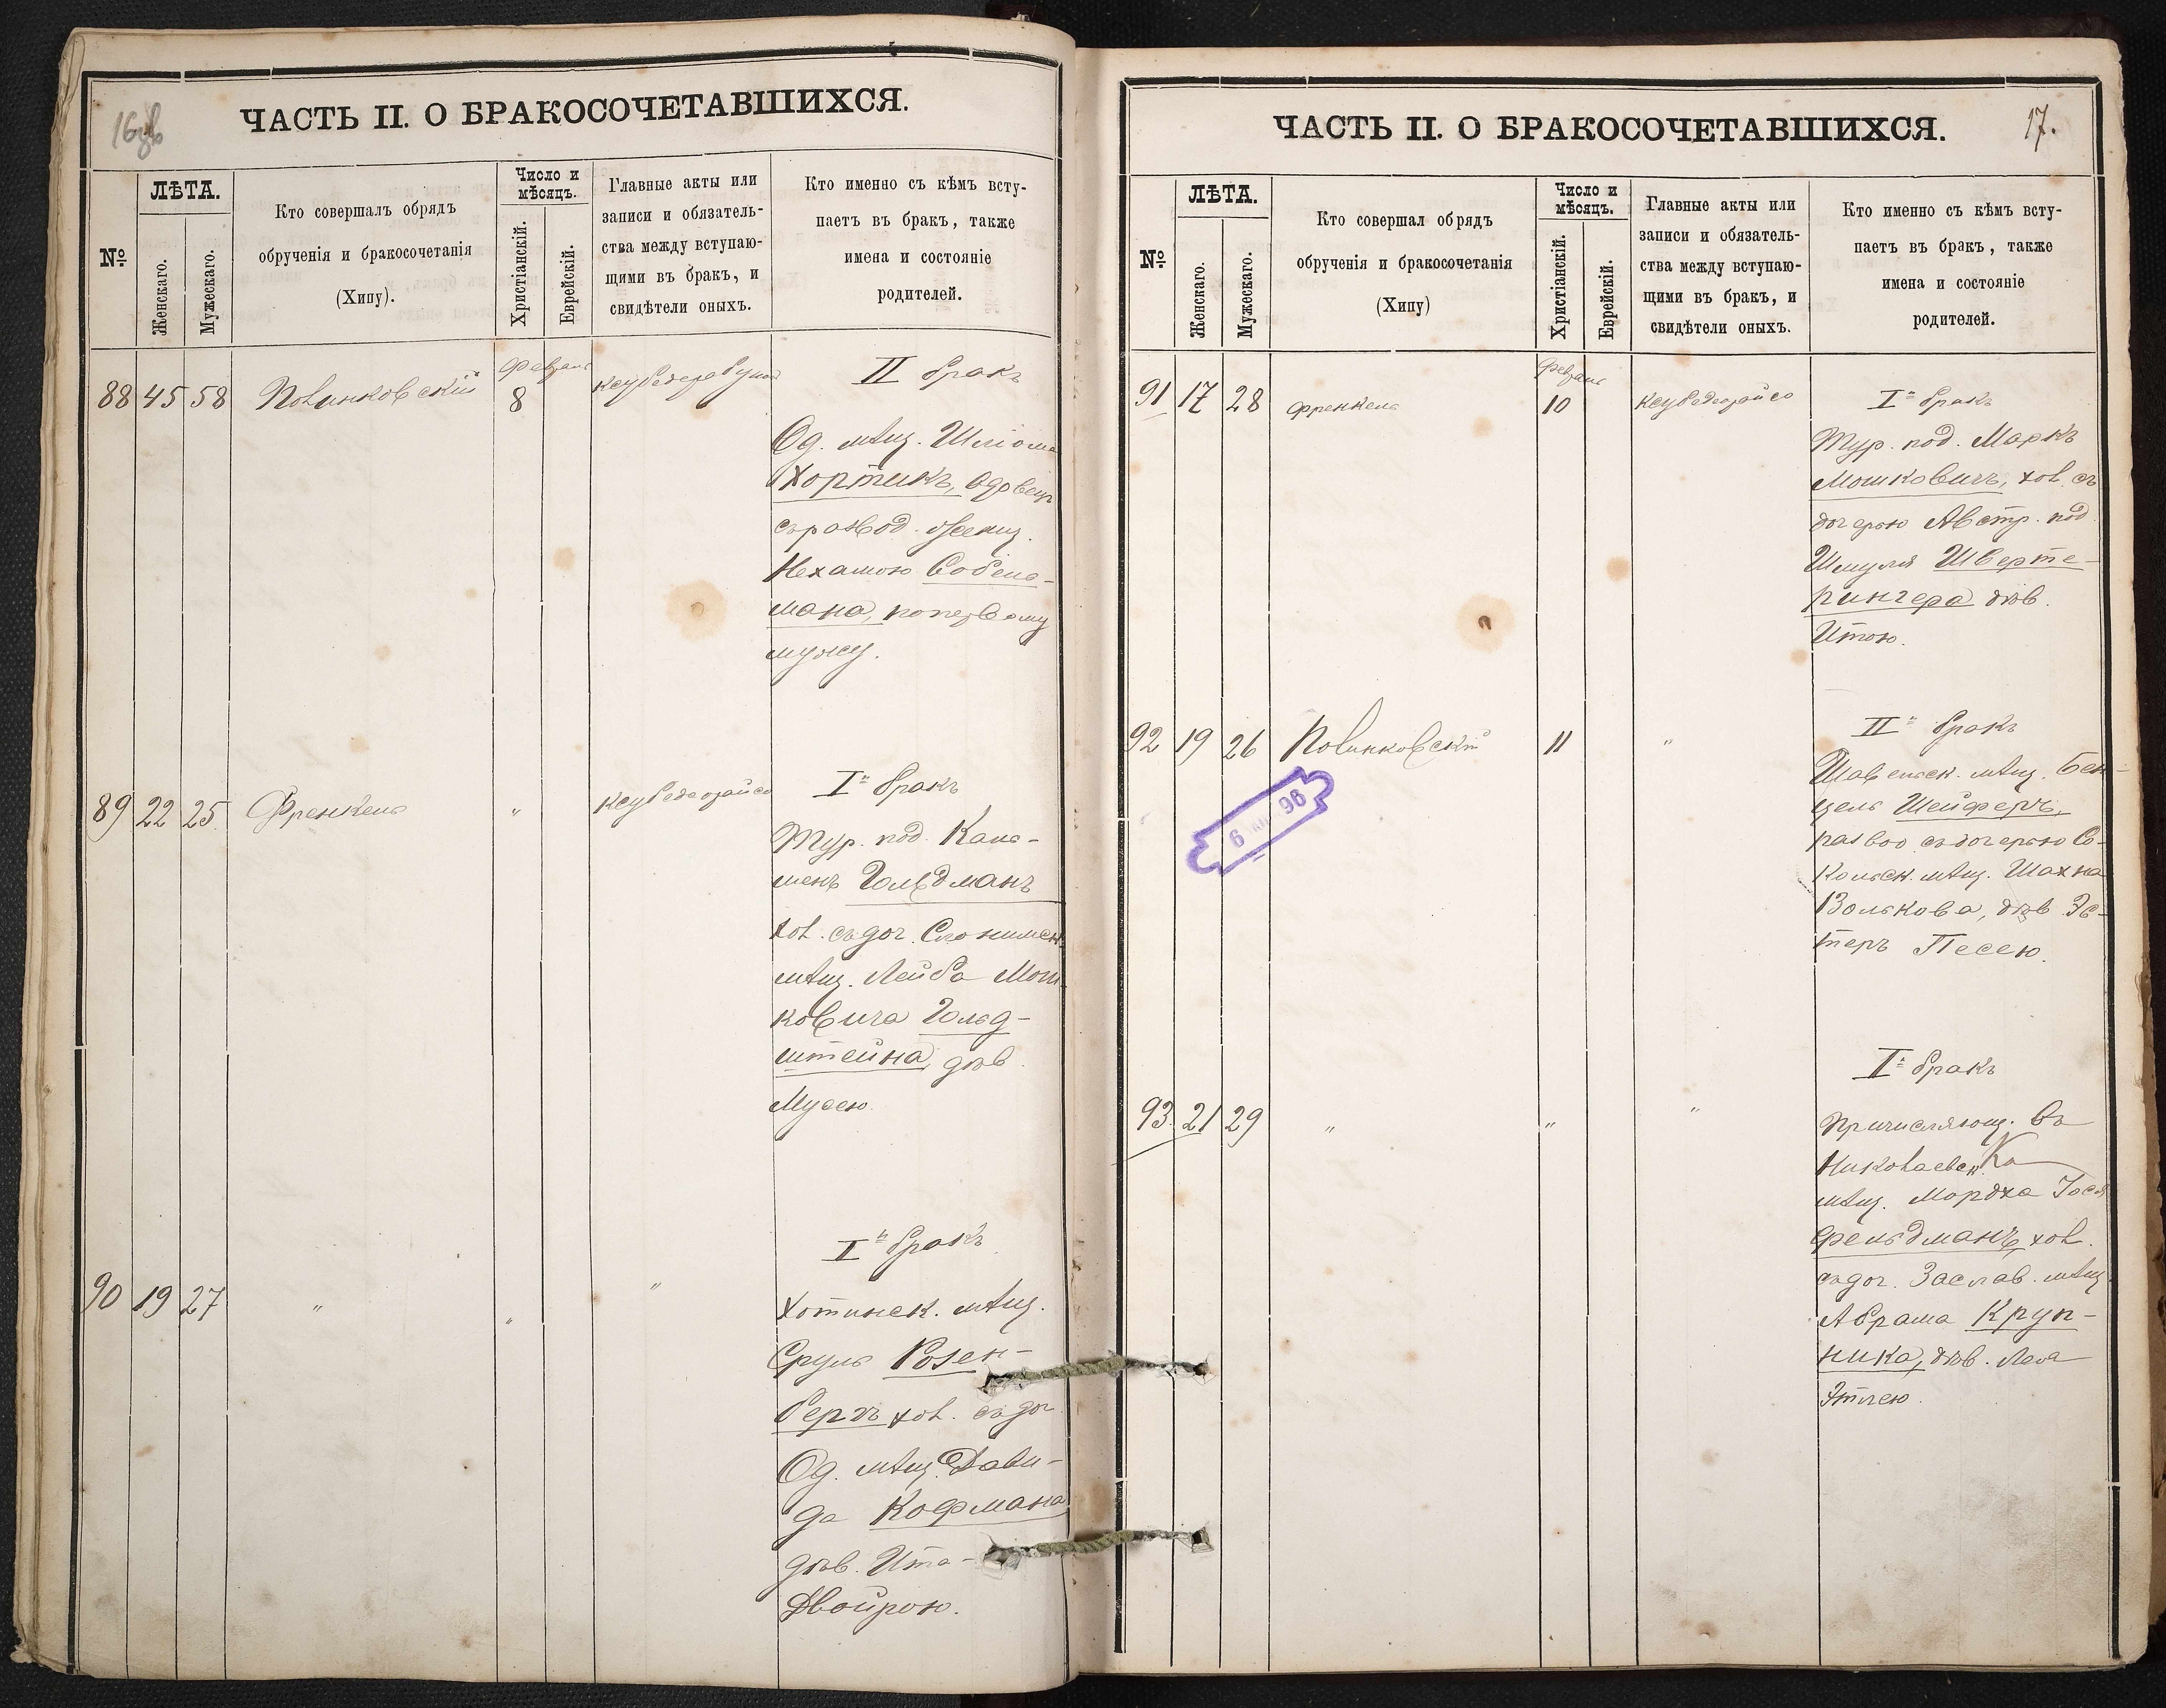 16об
ЧАСТЬ II. О БРАКОСОЧЕТАВШИХСЯ.
№
ЛѢТА.
Женскаго.
Мужескаго.
Кто совершалъ обрядъ
обрученія и бракосочетанія
(Хипу).
Число и
мѣсяцъ.
Христіанскій.
Еврейскій.
Главные акты или
записи и обязатель-
ства между вступаю-
щими въ бракъ, и
свидѣтели оныхъ.
Кто именно съ кѣмъ всту-
паетъ въ бракъ, также
имена и состояніе
родителей.
88 45 58 Повинковскій
Февраль
8
II бракъ
Од. мѣщ. Шліома
Хортикъ, вдовецъ
съ развод. женщ.
Нехамою Собель-
мана, по первому
мужу.
89 22 25 Френкель "
Iй бракъ
Тур. под. Каль-
менъ Гольдманъ
хол. съ доч. Слонимск.
мѣщ. Лейба Мош-
ковича Гольд-
штейна, дѣв.
Мусею.
90 19 27 " " "
Iй бракъ
Хотинск. мѣщ.
Сруль Розен-
бергъ хол. съ доч.
Од. мѣщ. Дави-
да Кофмана
дѣв. Ита-
Двойрою.
17.
ЧАСТЬ II. О БРАКОСОЧЕТАВШИХСЯ.
№
ЛѢТА.
Женскаго.
Мужескаго.
Кто совершал обрядъ
обрученія и бракосочетанія
(Хипу)
Число и
мѣсяцъ.
Христіанскій.
Еврейскій.
Главные акты или
записи и обязатель-
ства между вступаю-
щими въ бракъ, и
свидѣтели оныхъ.
Кто именно съ кѣмъ всту-
паетъ въ бракъ, также
имена и состояніе
родителей.
91 17 28 Френкель
Февраль
10
Iй бракъ
Тур. под. Маркъ
Мошковичъ, хол. съ
дочерью Австр. под.
Шмуля Шверте-
рингера дѣв.
Итою.
92 19 26 Повинковскій 11 "
IIй бракъ
Шавельск. мѣщ. Бен-
цель Шейферъ,
развод съ дочерью Со-
кольск. мѣщ. Шахна
Волькова, дѣв Эс-
теръ Песею.
6 96
93. 21 29 " " "
Iй бракъ
Причисляющ. въ
Николаевск
мѣщ. Мордха Іосъ
Фельдманъ, хол.
съ доч. Заслав. мѣщ.
Абрама Круп-
ника, дѣв. Леа
Этлею.